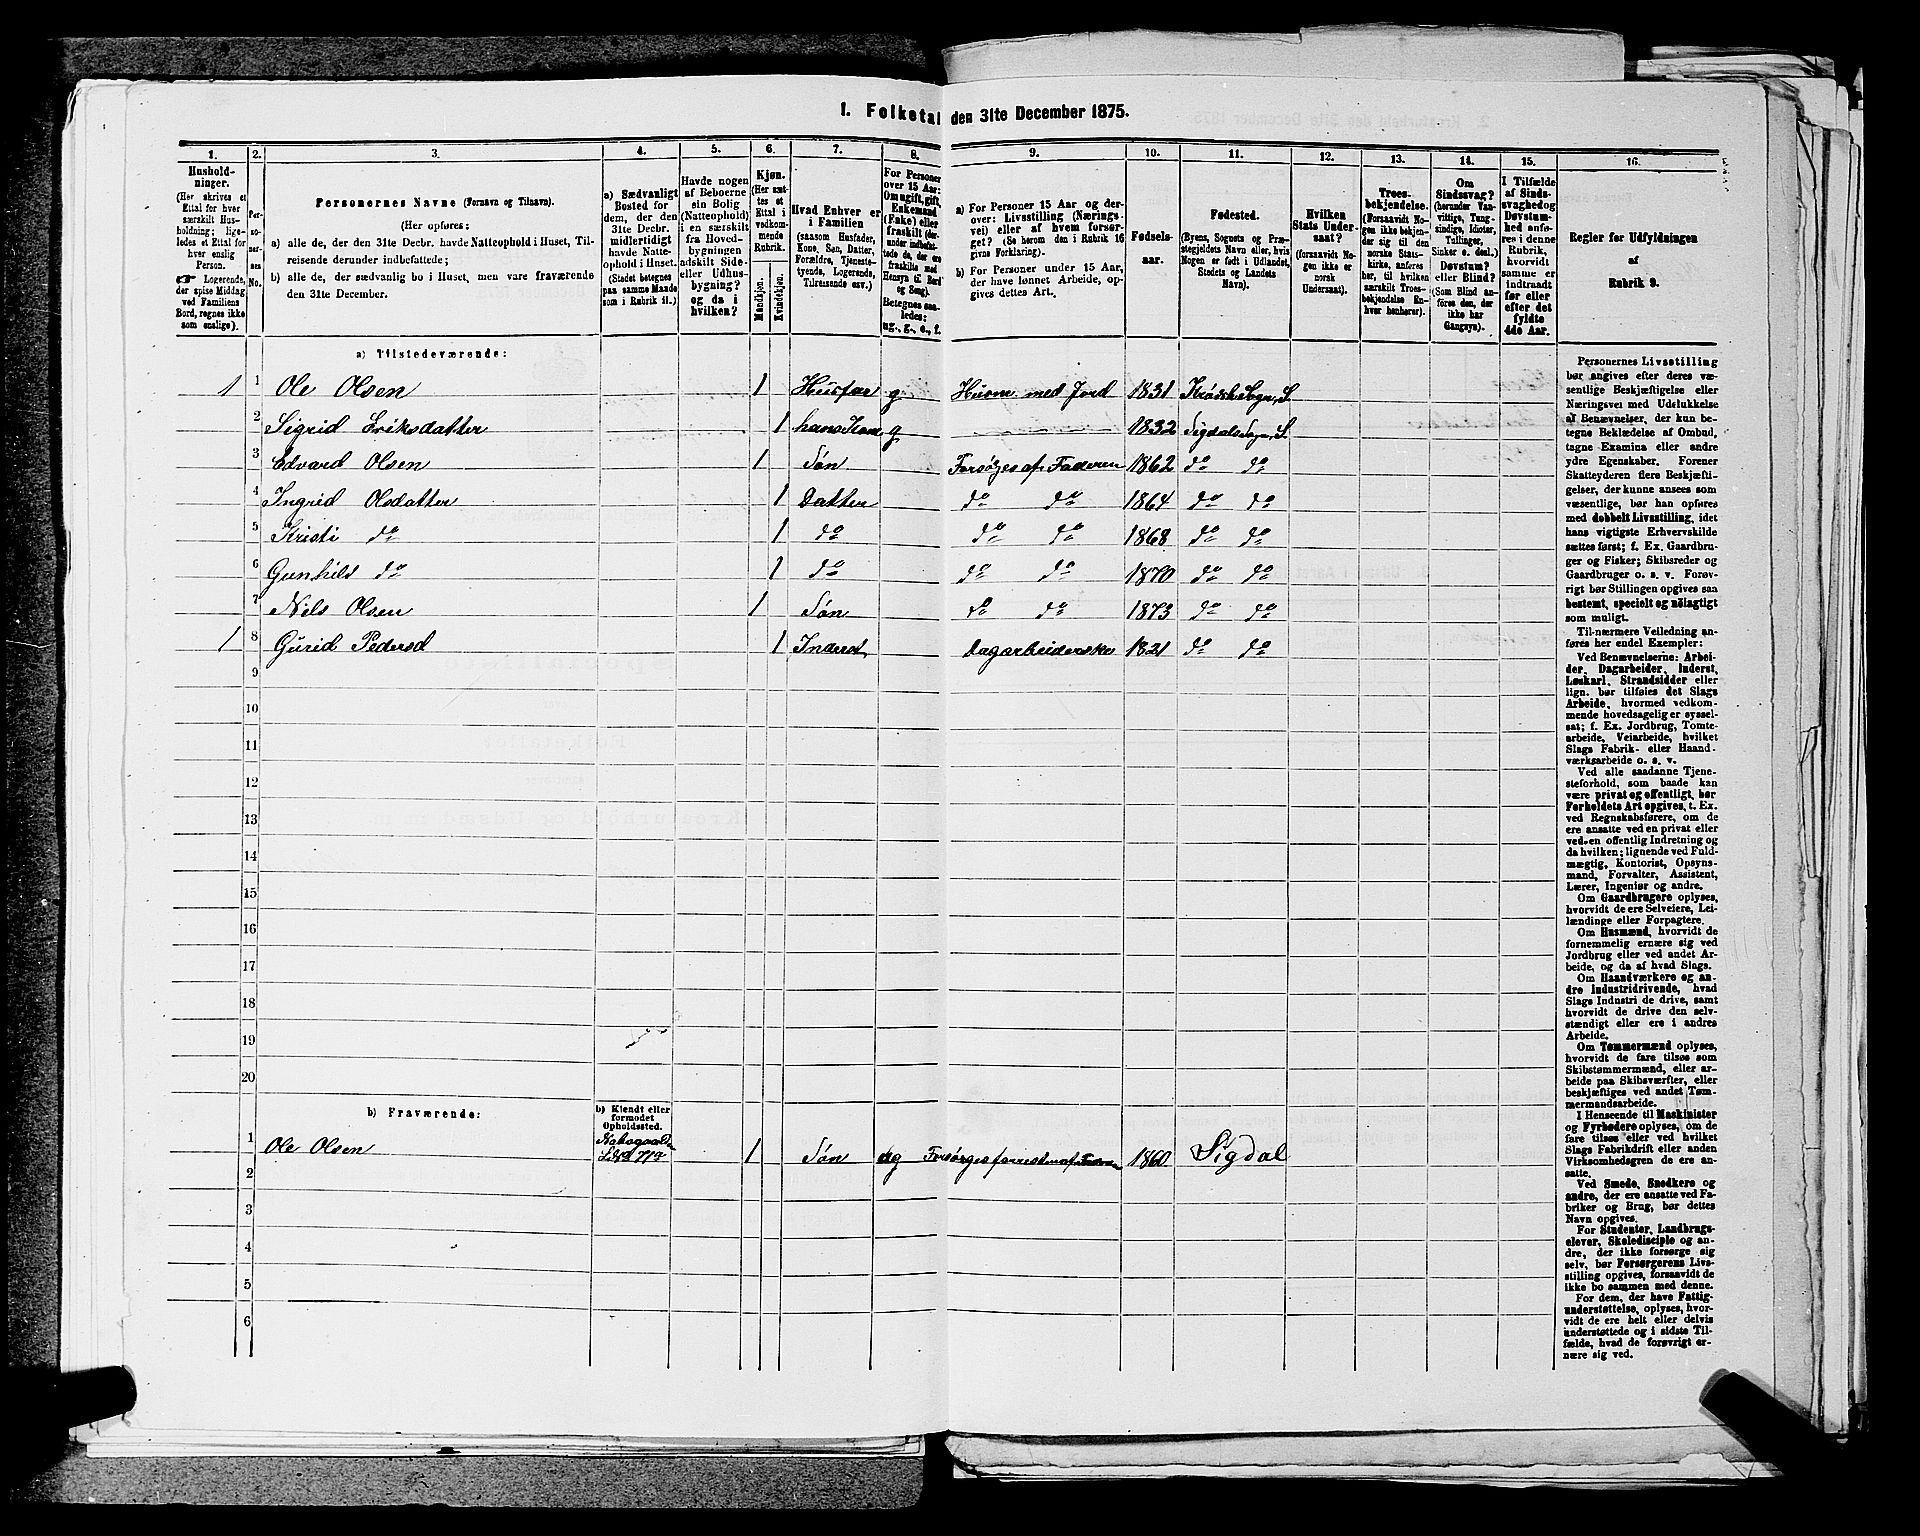 1. Folketal den 31te December 1875.
1. 2. 3. 4. 5. 6. 7. 8. 9. 10. 11. 12. 13. 14. 15. 16.
Hushold-
ninger.
(Her skrives et
Ettal for hver
særskilt Hus-
holdning; lige-
ledes et Ettal for
hver enslig
Person.
☛ Logerende,
der spise Middag
ved Familiens
Bord, regnes ikke
som enslige).
Per-
so-
ner-
nes
No.
Personernes Navne (Fornavn og Tilnavn).
(Her opføres:
a) alle de, der den 31te Decbr. havde Natteophold i Huset, Til-
reisende derunder indbefattede;
b) alle de, der sædvanlig bo i Huset, men vare fraværende
den 31te December.
a) Sædvanligt
Bosted for
dem, der den
31te Decbr.
midlertidigt
havde Natte-
ophold i Huset.
(Stedet betegnes
paa samme Maade
som i Rubrik 11.)
Havde nogen
af Beboerne
sin Bolig
(Natteophold)
i en særskilt
fra Hoved-
bygningen
adskilt Side-
eller Udhus-
bygning?
og da i
hvilken?
Kjøn.
(Her sæt-
tes et
Ettal i
vedkom-
mende
Rubrik.
Mandkjøn.
Kvindekjøn.
Hvad Enhver er
i Familien
(saasom Husfader,
Kone, Søn, Datter,
Forældre, Tjeneste-
tyende, Logerende,
Tilreisende osv.)
For Personer
over 15 Aar:
Om ugift, gift,
Enkemand
(Enke) eller
fraskilt (der-
under indbefat-
tede de, der ere
fraskilte med
Hensyn til Bord
og Seng).
Betegnes saa-
ledes:
ug., g., e., f.
a) For Personer 15 Aar og der-
over: Livsstilling (Nærings-
vei) eller af hvem forsør-
get? (Se herom den i Rubrik 16
givne Forklaring).
b) For Personer under 15 Aar,
der have lønnet Arbeide, op-
gives dettes Art.
Fødsels-
aar.
Fødested.
(Byens, Sognets og Præ-
stegjeldets Navn eller, hvis
Nogen er født i Udlandet,
Stedets og Landets
Navn).
Hvilken
Stats Under-
saat?
(forsaavidt No-
gen ikke er
norsk
Undersaat).
Troes-
bekjendelse.
(Forsaavidt No-
gen ikke bekjen-
der sig til den
norske Stats-
kirke, anføres
her, til hvilken
særskilt Troes-
bekjendelse En-
hver henhører).
Om
Sindssvag?
(herunder Van-
vittige, Tung-
sindige, Idioter,
Tullinger,
Sinker o. desl.).
Døvstum?
eller Blind?
(Som Blind an-
føres den, der
ikke har
Gangsyn).
I Tilfælde
af Sinds-
svaghed og
Døvstum-
hed anfø-
res i denne
Rubrik,
hvorvidt
samme er
indtraadt
før eller
efter det
fyldte
4de Aar.
Regler for Udfyldningen
af
Rubrik 9.
a) Tilstedeværende:
1 1 Ole Olsen 1 Husfar g Husm med Jord 1831 Krødsh. Sogn, S.
2 Sigrid Eriksdatter 1 hans Kone g 1832 Sigdals Sogn, S.
3 Edvard Olsen 1 Søn Forsørges af Faderen 1862 do do
4 Ingrid Olsdatter 1 Datter do do 1864 do do
5 Kristi do 1 do do do 1868 do do
6 Gunhild do 1 do do do 1870 do do
7 Nels Olsen 1 Søn do do 1873 do do
1 8 Gurid Pedersd 1 Inderst Dagarbeiderske 1821 do do
9
10
11
12
13
14
15
16
17
18
19
20
b) Fraværende:
b) Kjendt eller
formodet
Opholdssted.
1 Ole Olsen 1 Søn ug 1860 Sigdal
2
3
4
5
6
Personernes Livsstilling
bør angives efter deres væ-
sentlige Beskjæftigelse eller
Næringsvei med Udelukkelse
af Benævnelser, der kun be-
tegne Beklædelse af Ombud,
tagne Examina eller andre
ydre Egenskaber. Forener
Skatteyderen flere Beskjæfti-
gelser, der kunne ansees som
væsentlige, bør han opføres
med dobbelt Livsstilling, idet
hans vigtigste Erhvervskilde
sættes først; f. Ex. Gaardbru-
ger og Fisker; Skibsreder og
Gaardbruger o. s. v. Forøv-
rigt bør Stillingen opgives saa
bestemt, specielt og nøiagtigt
som muligt.
Til nærmere Veiledning an-
føres her endel Exempler:
Ved Benævnelserne: Arbei-
der, Dagarbeider, Inderst,
Løskarl, Strandsidder eller
lign. bør tilføies det Slags
Arbeide, hvormed vedkom-
mende hovedsagelig er syssel-
sat; f. Ex. Jordbrug, Tomte-
arbeide, Veiarbeide, hvilket
Slags Fabrik- eller Haand-
værksarbeide o. s. v.
Ved alle saadanne Tjene-
steforhold, som baade kan
være privat og offentligt, bør
Forholdets Art opgives, t. Ex.
ved Regnskabsførere, om de
ere ansatte ved en privat eller
ved en offentlig Indretning og
da hvilken; lignende ved Fuld-
mægtig, Kontorist, Opsyns-
mand, Forvalter, Assistent,
Lærer, Ingeniør og andre.
Om Gaardbrugere oplyses,
hvorvidt de ere Selveiere, Lei-
lændinge eller Forpagtere.
Om Husmænd, hvorvidt de
fornemmelig ernære sig ved
Jordbrug eller ved andet Ar-
beide, og da af hvad Slags.
Om Haandværkere og an-
dre Industridrivende, hvad
Slags Industri de drive, samt
hvorvidt de drive den selv-
stændigt eller ere i andres
Arbeide.
Om Tømmermænd oplyses,
hvorvidt de fare tilsøs som
Skibstømmermænd, eller ar-
beide paa Skibsværfter, eller
beskjæftiges ved andet Tøm-
mermandsarbeide.
I Henseende til Maskinister
og Fyrbødere oplyses, om de
fare tilsøs eller ved hvilket
Slags Fabrikdrift eller anden
Virksomhedsgren de ere an-
satte.
Ved Smede, Snedkere og
andre, der ere ansatte ved Fa-
briker og Brug, bør dettes
Navn opgives.
For Studenter, Landbrugs-
elever, Skoledisciple og an-
dre, der ikke forsørge sig
selv, bør Forsørgerens Livs-
stilling opgives, forsaavidt de
ikke bo sammen med denne.
For dem, der have Fattig-
understøttelse, oplyses, hvor-
vidt de ere helt eller delvis
understøttede og i sidste Til-
fælde, hvad de forøvrigt er-
nære sig ved.